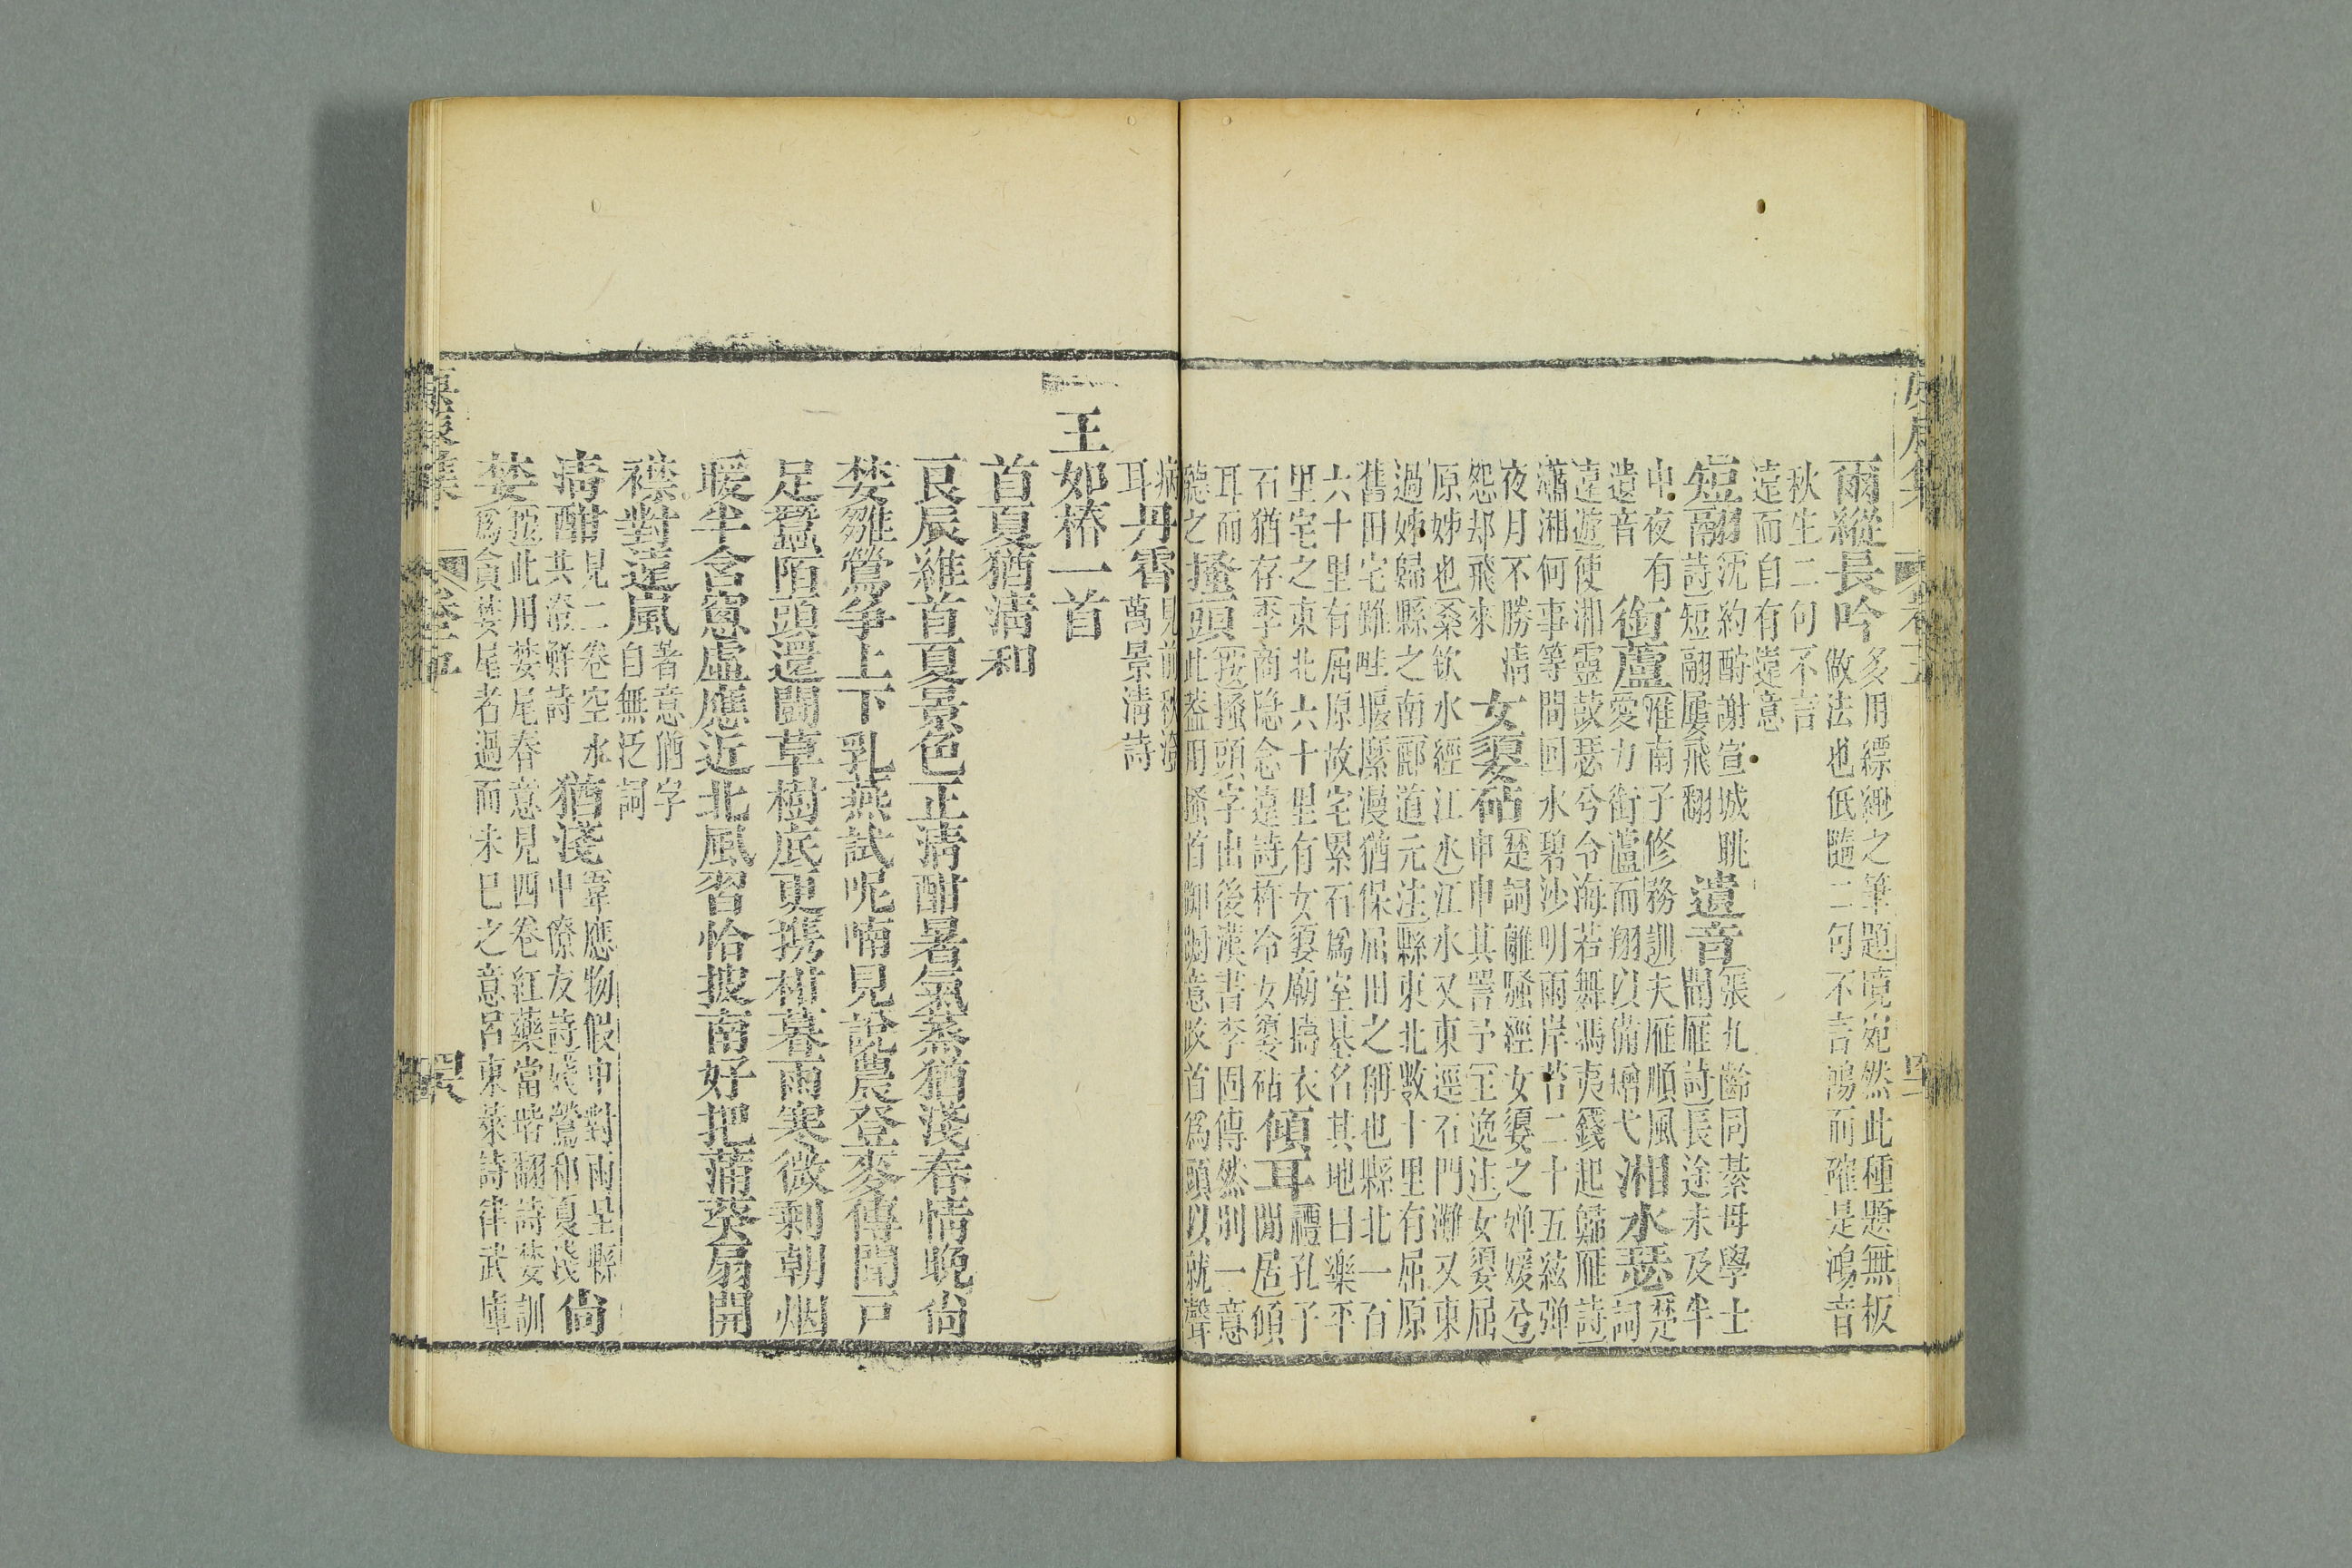 爾縱長吟多用縹緲之筆題境宛然此種題無板
做法也低隨二句不言鴻而確是鴻音
秋生二句不言
遠而自有遠意
短翮沈約酧謝宣城眺
詩短翮屢飛翻
遺音張九齡同綦毋學士
聞雁詩長途未及半
中夜有
遺音
銜蘆淮南子修務訓夫雁順風
愛力銜蘆而翔以備矰弋
湘水瑟楚詞
遠遊使湘靈鼓瑟兮令海若舞馮夷錢起歸雁詩
瀟湘何事等閒回水碧沙明兩岸苔二十五絃弹
夜月不勝清
怨却飛來
女嬃砧楚詞離騷經女嬃之嬋媛兮
申申其詈予王逸注女嬃屈
原姊也桑欽水經江水江水又東逕石門灘又東
過姊歸縣之南酈道元注縣東北數十里有屈原
舊田宅雖畦堰縻漫猶保屈田之稱也縣北一百
六十里有屈原故宅累石爲室基名其地曰樂平
里宅之東北六十里有女嬃廟擣衣
石猶存李商隐念遠詩杵冷女嬃砧
傾耳禮孔子
閒居傾
耳而
聽之
搔頭按搔頭字出後漢書李固傳然别一意
此葢用搔首踟蹰意改首爲頭以就聲
病
耳丹霄見前秋海
萬景清詩
王郊椿一首
首夏猶清和
良辰維首夏景色正清酣暑氣蒸猶淺春情晚尚
婪雛鶯争上下乳燕試呢喃見說農登麥傳聞戸
足蠶陌頭還鬭草樹底更携柑暮雨寒微剩朝烟
暖半含窻虛應近北風習恰披南好把蒲葵扇開
襟對遠嵐著意猶字
自無泛詞
清酣見二卷空水
共澄鮮詩
猶淺韋應物假中對雨呈縣
中僚友詩殘鶯和夏淺
尚
婪按此用婪尾春意見四卷紅藥當階翻詩婪訓
爲貪婪尾者過而未已之意呂東萊詩律武庫